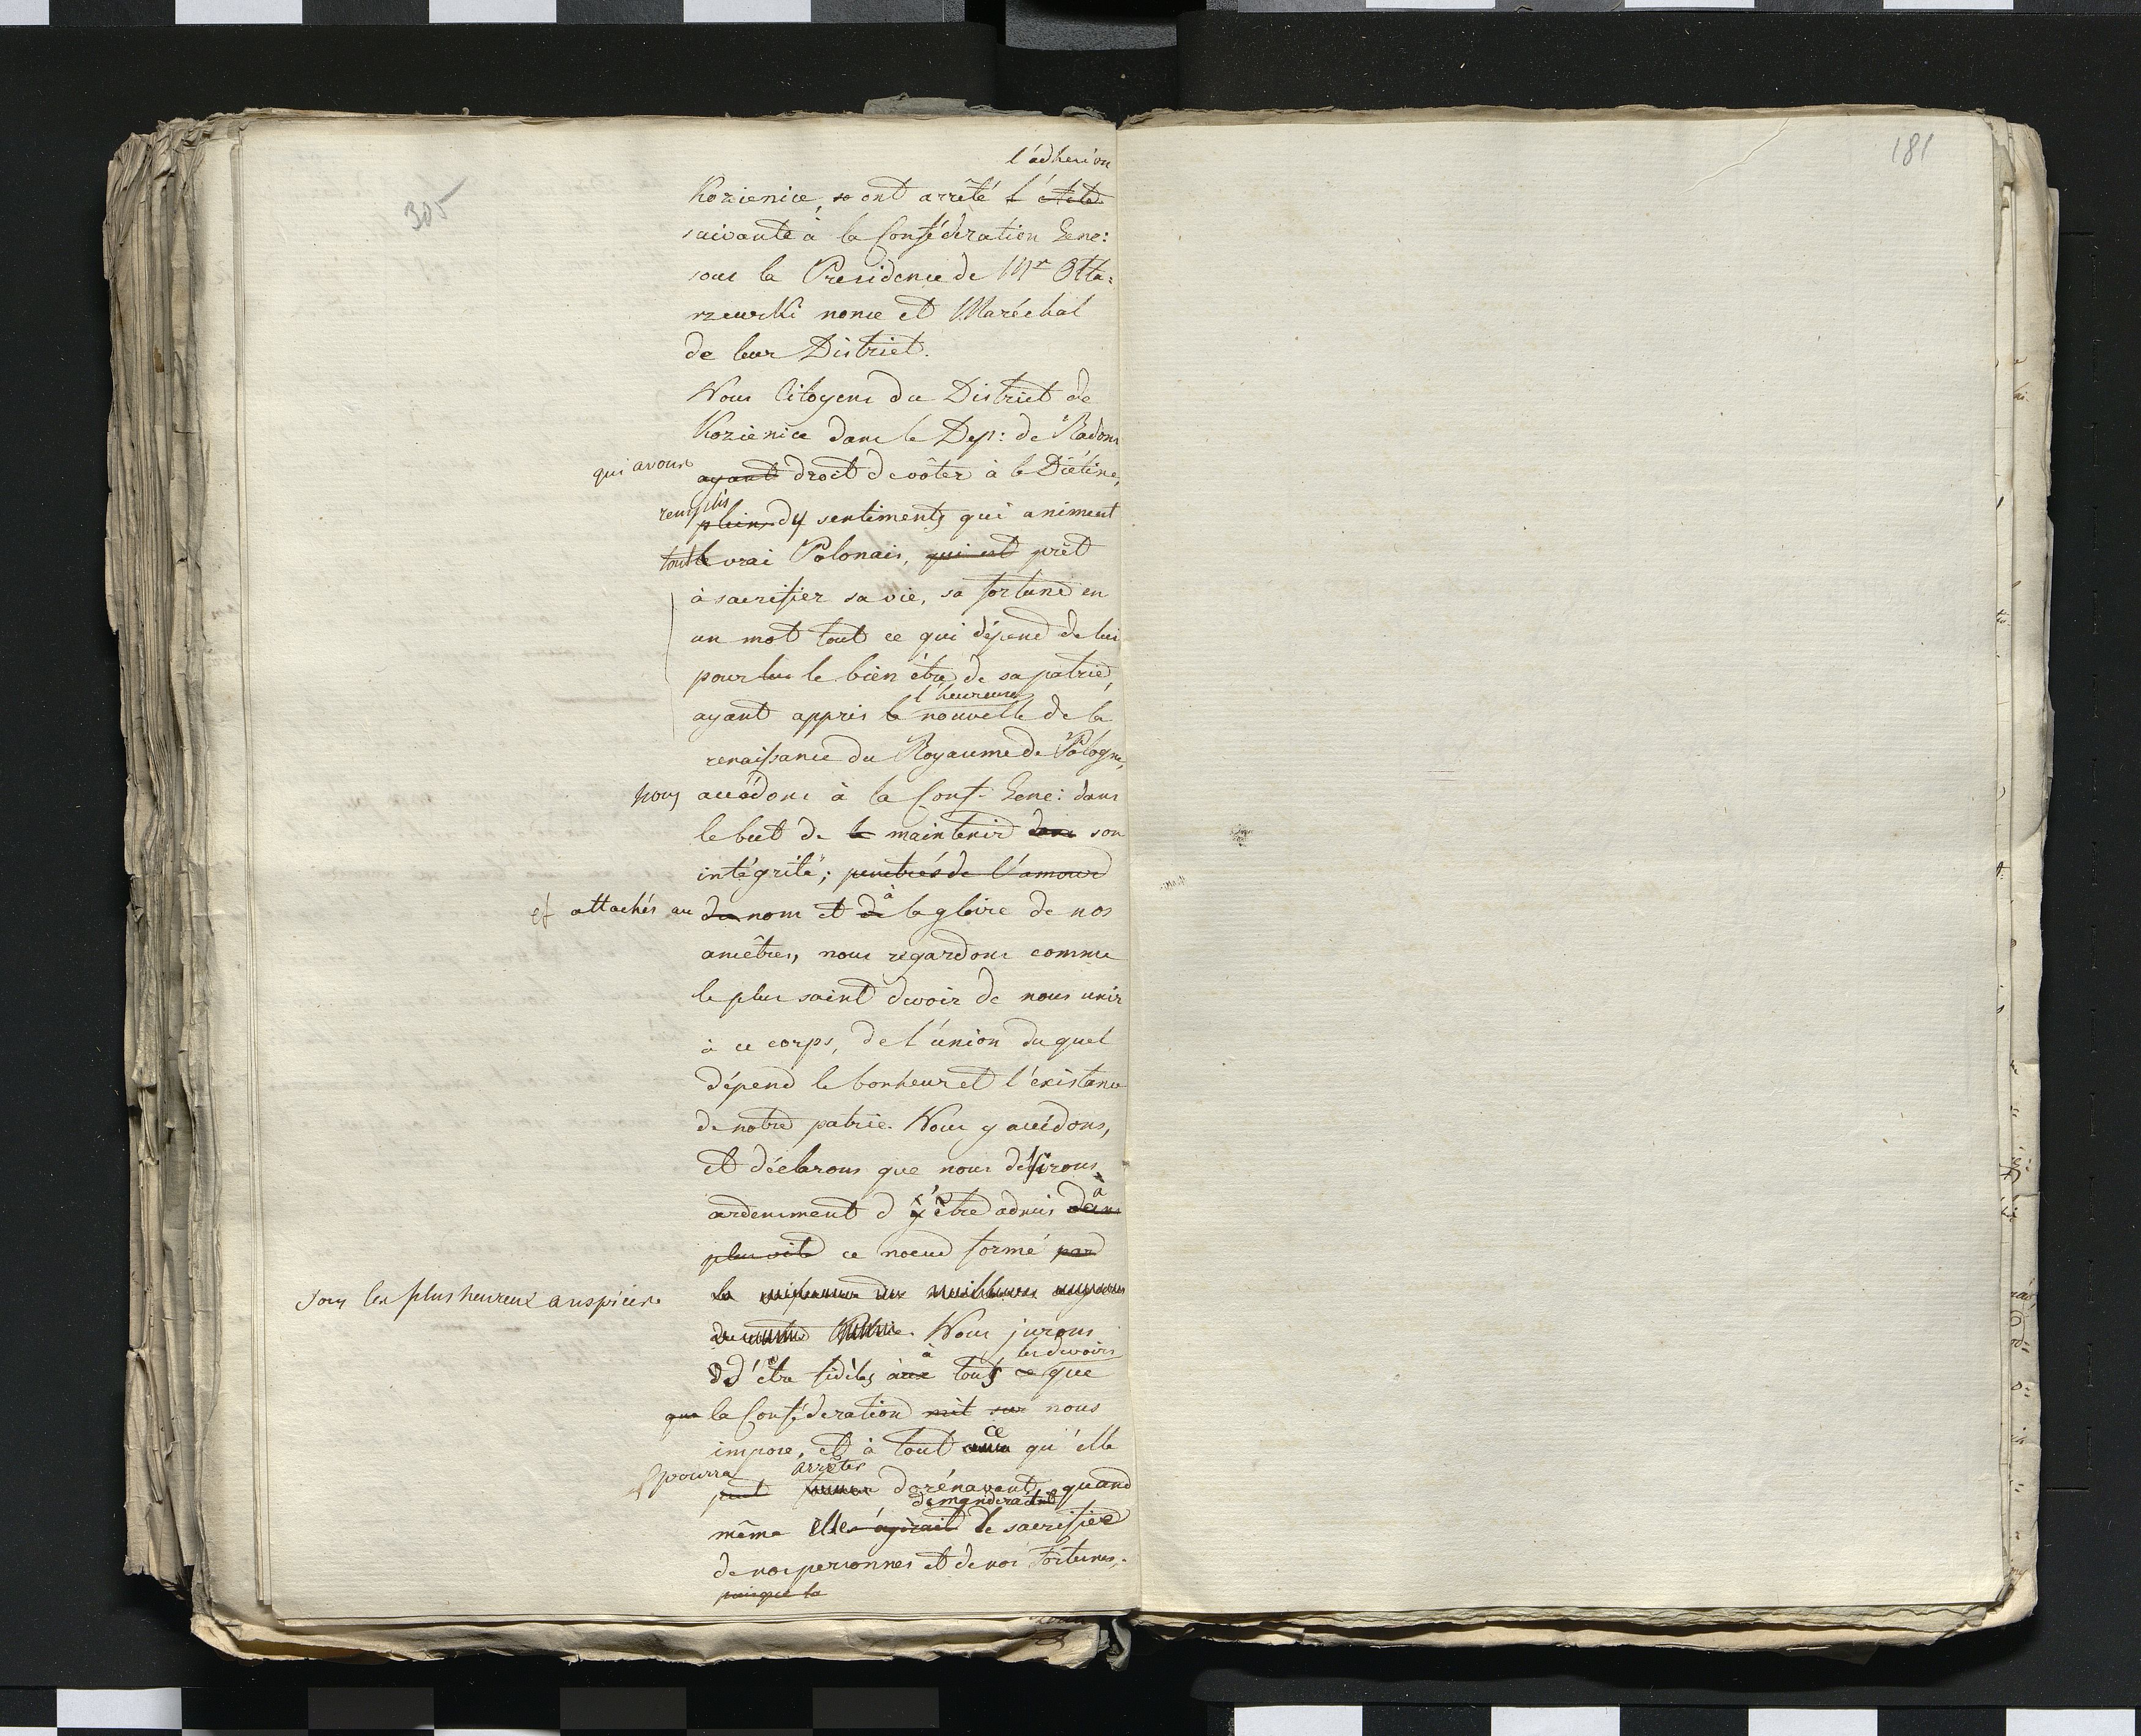 305
181
l'adhesion
Kozienice, ont arrêté l'Acte
suivante à la Confédération Gene:
sous la Presidence de Mr Otta=
rzewski nonce et Maréchal
de leur District.
Nous Citoyens du District de
Kozienice dans le Dep: de Radom
qui avons ayant droit de vôter à la Diétine,
remplis pleins des sentiments qui animent
tout le vrai Polonais, qui est prêt
à sacrifier sa vie, sa fortune en
un mot tout ce qui dépend de lui
pour le bien être de sa patrie,
l'heureuse
ayant appris la nouvelle de la
renaissance du Royaume de Pologne,
nous accédons à la Conf. Gene: dans
le but de la maintenir dans son
intégrité; penetrés de l'amour
et attachés au du nom et de à la gloire de nos
ancêtres, nous regardons comme
le plus saint devoir de nous unir
à ce corps, de l'union du quel
dépend le bonheur et l'existance
de notre patrie. Nous y accédons,
et déclarons que nous désirons
ardemment d'être admis dans à
plus vite ce noeud formé par
sous les plus heureux auspices. la des meilleurs
Nous jurons
à les devoirs
d'être fidèles aux tous ce que
que la Confédération mit sur nous
impose, et à tout ce qu'elle
pourra arrêter
peut dorénavant, quand
demanderait
même elle s'agirait le sacrifice
de nos personnes et de nos fortunes.
puisque la